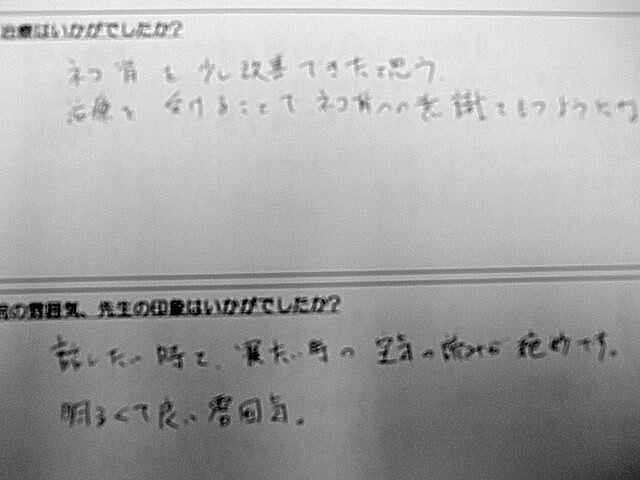 治療はいかがでしたか?
ネコ背も少し改善できたと思う。
治療を受けることでネコ背への意識をもつようにな
院の雰囲気、先生の印象はいかがでしたか?
話したい時と、寝たい時の空気の読みが絶妙です。
明るくて良い雰囲気。